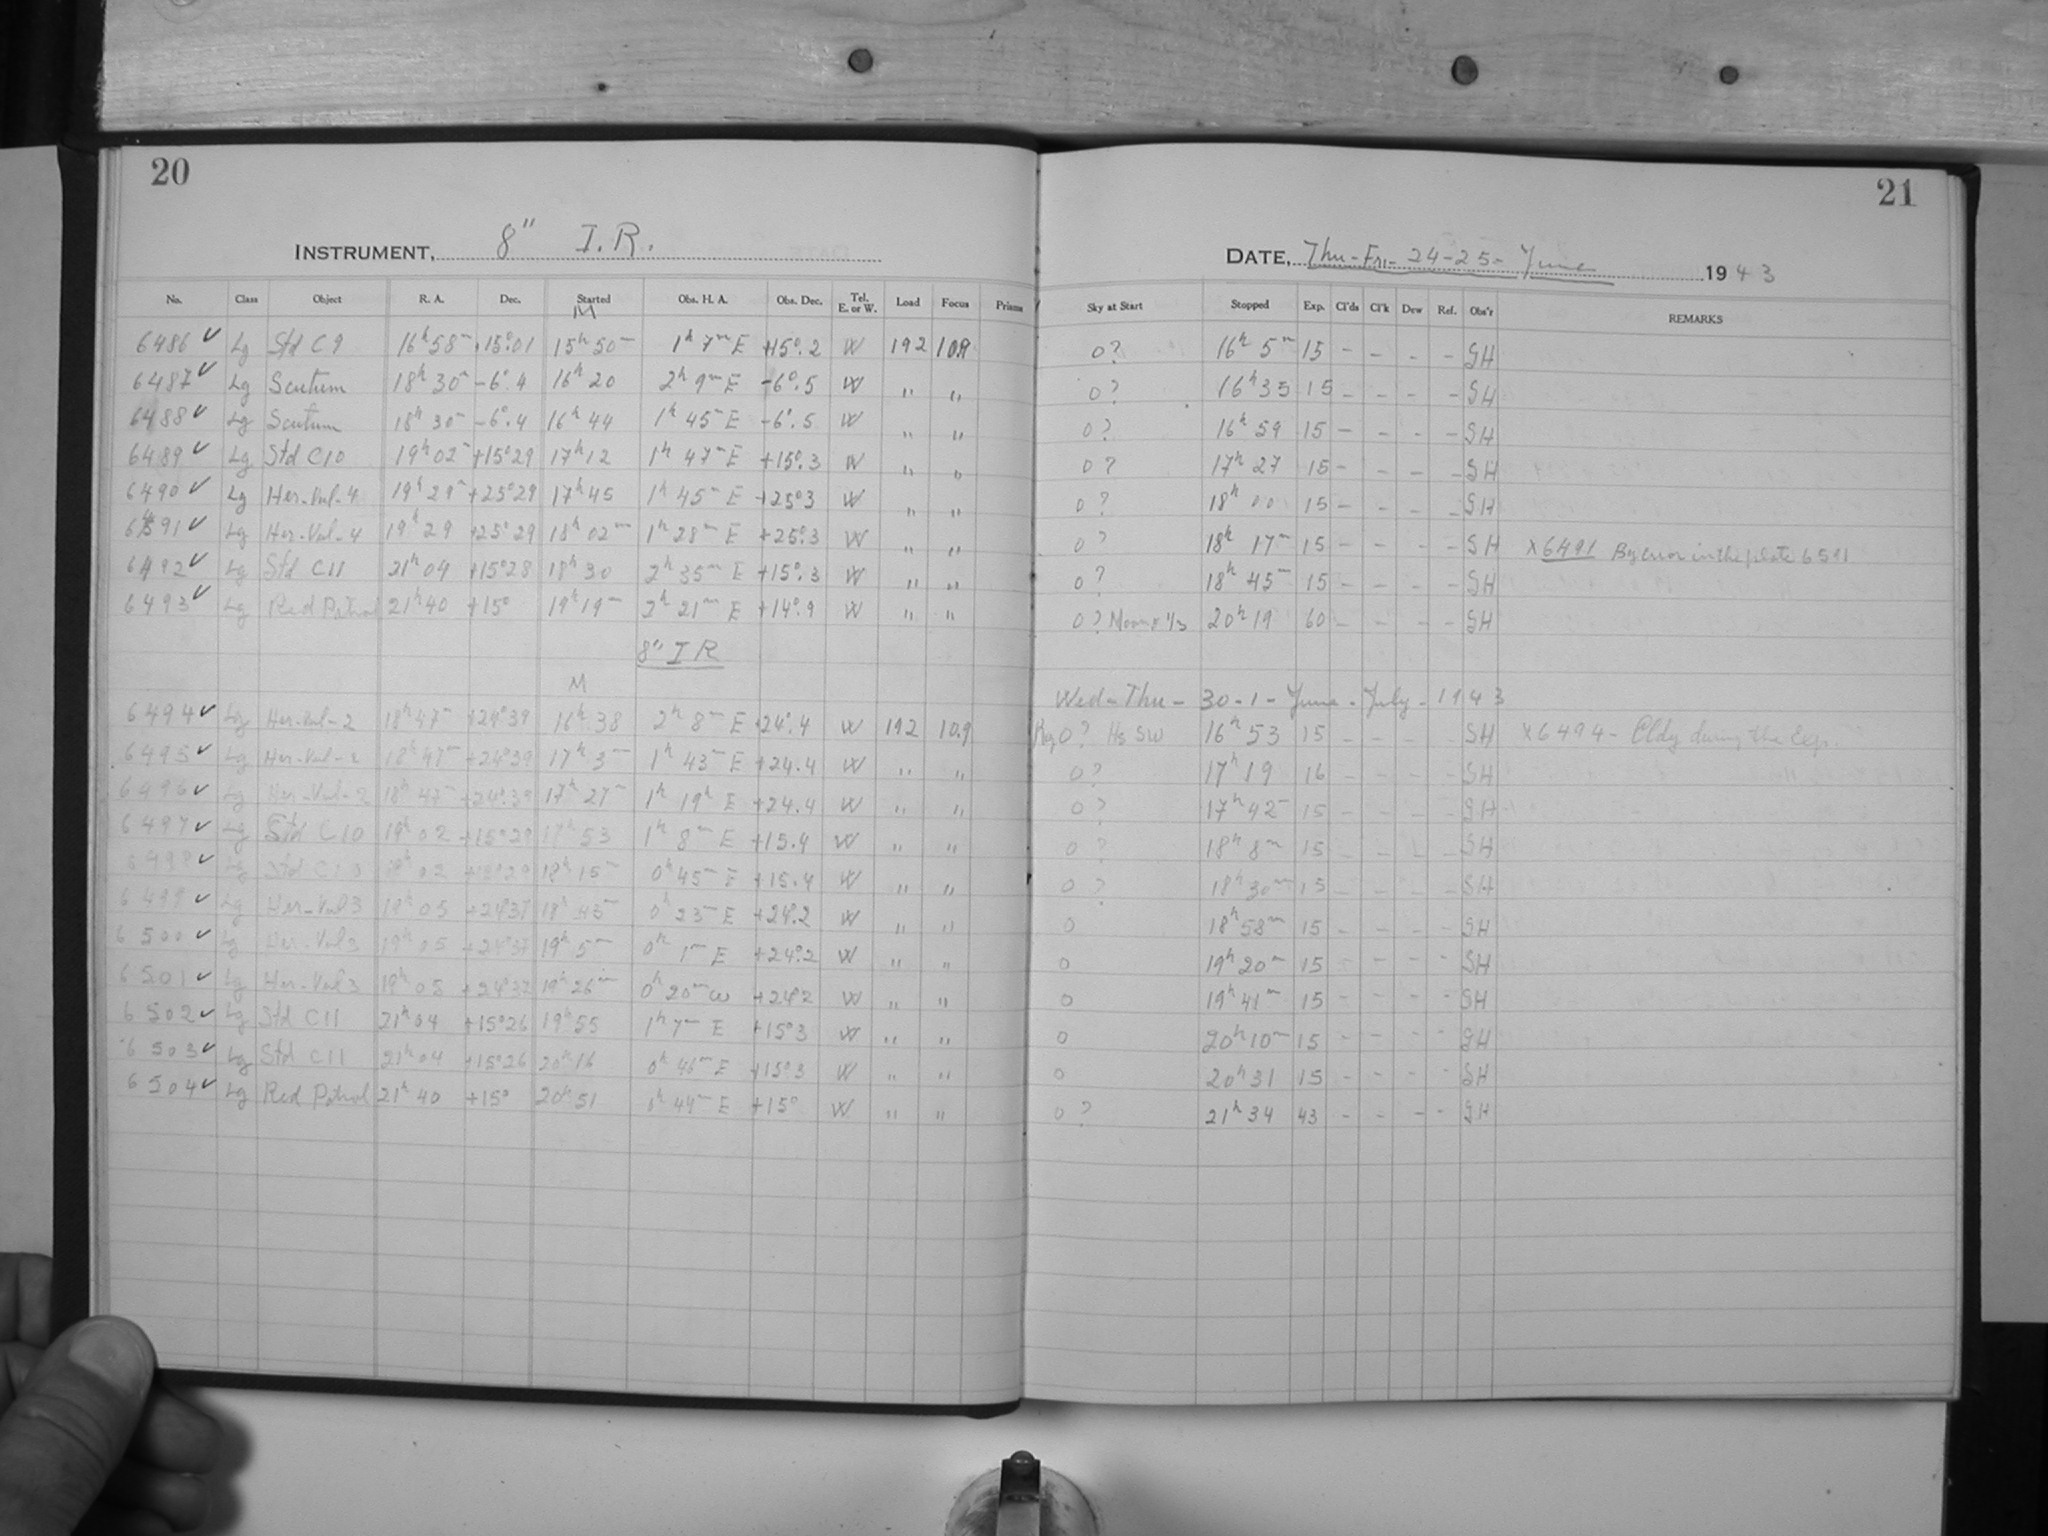 20
INSTRUMENT, 8" I.R.
No. Class Object R. A. Dec. Started Obs. H. A. Obs. Dec. Tel. E. or W. Load Focus Prisms
M
6486 ✓ Lg Std C9 16h 58m +15°01 15h 50m 1h 7m E +15°.2 W 192 10.9
6487 ✓ Lg Scutum 18h 30m -6°.4 16h 20 2h 9m E -6°.5 W " "
6488 ✓ Lg Scutum 18h 30m -6°.4 16h 44 1h 45m E -6°.5 W " "
6489 ✓ Lg Std C10 19h 02m +15°29 17h 12 1h 47m E +15°.3 W " "
6490 ✓ Lg Her-Vul-4 19h 29m +25°29 17h 45 1h 45m E +25°3 W " "
6491 ✓ Lg Her-Vul-4 19h 29 +25°29 18h 02m 1h 28m E +25°.3 W " "
6492 ✓ Lg Std C11 21h 04 +15°28 18h 30 2h 35m E +15°.3 W " "
6493 ✓ Lg Red Patrol 21h 40 +15° 19h 19m 2h 21m E +14°.9 W " "
8" I R
M
6494 ✓ Lg Her-Vul-2 18h 47m +24°39 16h 38 2h 8m E +24°.4 W 192 10.9
6495 ✓ Lg Her-Vul-2 18h 47m +24°39 17h 3m 1h 43m E +24.4 W " "
6496 ✓ Lg Her-Vul-2 18h 47m +24°.39 17h 27m 1h 19h E +24.4 W " "
6497 ✓ Lg Std C10 19h 02 +15°29 17h 53 1h 8m E +15.4 W " "
6498 ✓ Lg Std C10 19h 02 +15°29 18h 15m 0h 45m E +15.4 W " "
6499 ✓ Lg Her-Vul3 19h 05 +24°37 18h 43m 0h 23m E +24°.2 W " "
6500 ✓ Lg Her-Vul3 19h 05 +24°37 19h 5m 0h 1m E +24°.2 W " "
6501 ✓ Lg Her-Vul3 19h 05 +24°37 19h 26m 0h 20m W +24°2 W " "
6502 ✓ Lg Std C11 21h 04 +15°26 19h 55 1h 7m E +15°3 W " "
6503 ✓ Lg Std C11 21h 04 +15°26 20h 16 0h 46m E +15°3 W " "
6504 ✓ Lg Red Patrol 21h 40 +15° 20h 51 0h 44m E +15° W " "
21
DATE, Thu-Fri- 24-25- June 1943
Sky at Start Stopped Exp. Cl'ds Cl'k Dew Ref. Obs'r REMARKS
0? 16h 5m 15 - - - - SH
0? 16h 35 15 - - - - SH
0? 16h 59 15 - - - - SH
0? 17h 27 15 - - - - SH
0? 18h 00 15 - - - - SH
0? 18h 17m 15 - - - - SH x6491 By error in the plate 6591
0? 18h 45m 15 - - - - SH
0? Moon 20h 19 60 - - - - SH
Wed-Thu - 30-1- June - July - 1943
0? Hs SW 16h 53 15 - - - - SH x6494 - Cldy during the Exp.
0? 17h 19 16 - - - - SH
0? 17h 42m 15 - - - - SH
0? 18h 8m 15 - - - - SH
0? 18h 30m 15 - - - - SH
0 18h 58m 15 - - - - SH
0 19h 20m 15 - - - - SH
0 19h 41m 15 - - - - SH
0 20h 10m 15 - - - - SH
0 20h 31 15 - - - - SH
0? 21h 34 43 - - - - SH